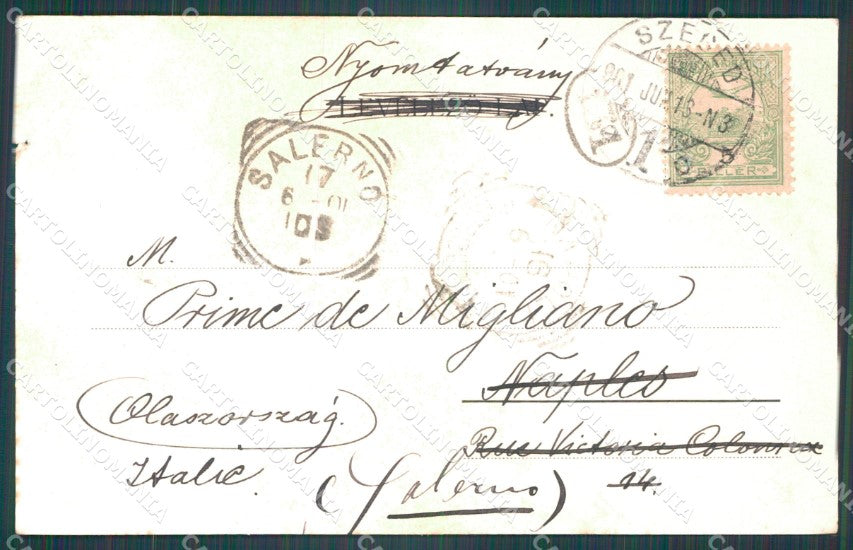 Nyomtatvány
LEVELEZŐ-LAP.
SZEGED
901 JUN. 16-N3
1 B
FILLÉR
SALERNO
17
6-01
10S
16
6-01
M.
Prime de Migliano
Naples
Rue Victoria Colonna
14.
Olaszország.
Italie.
(Salerno)
CARTOLINOMANIA